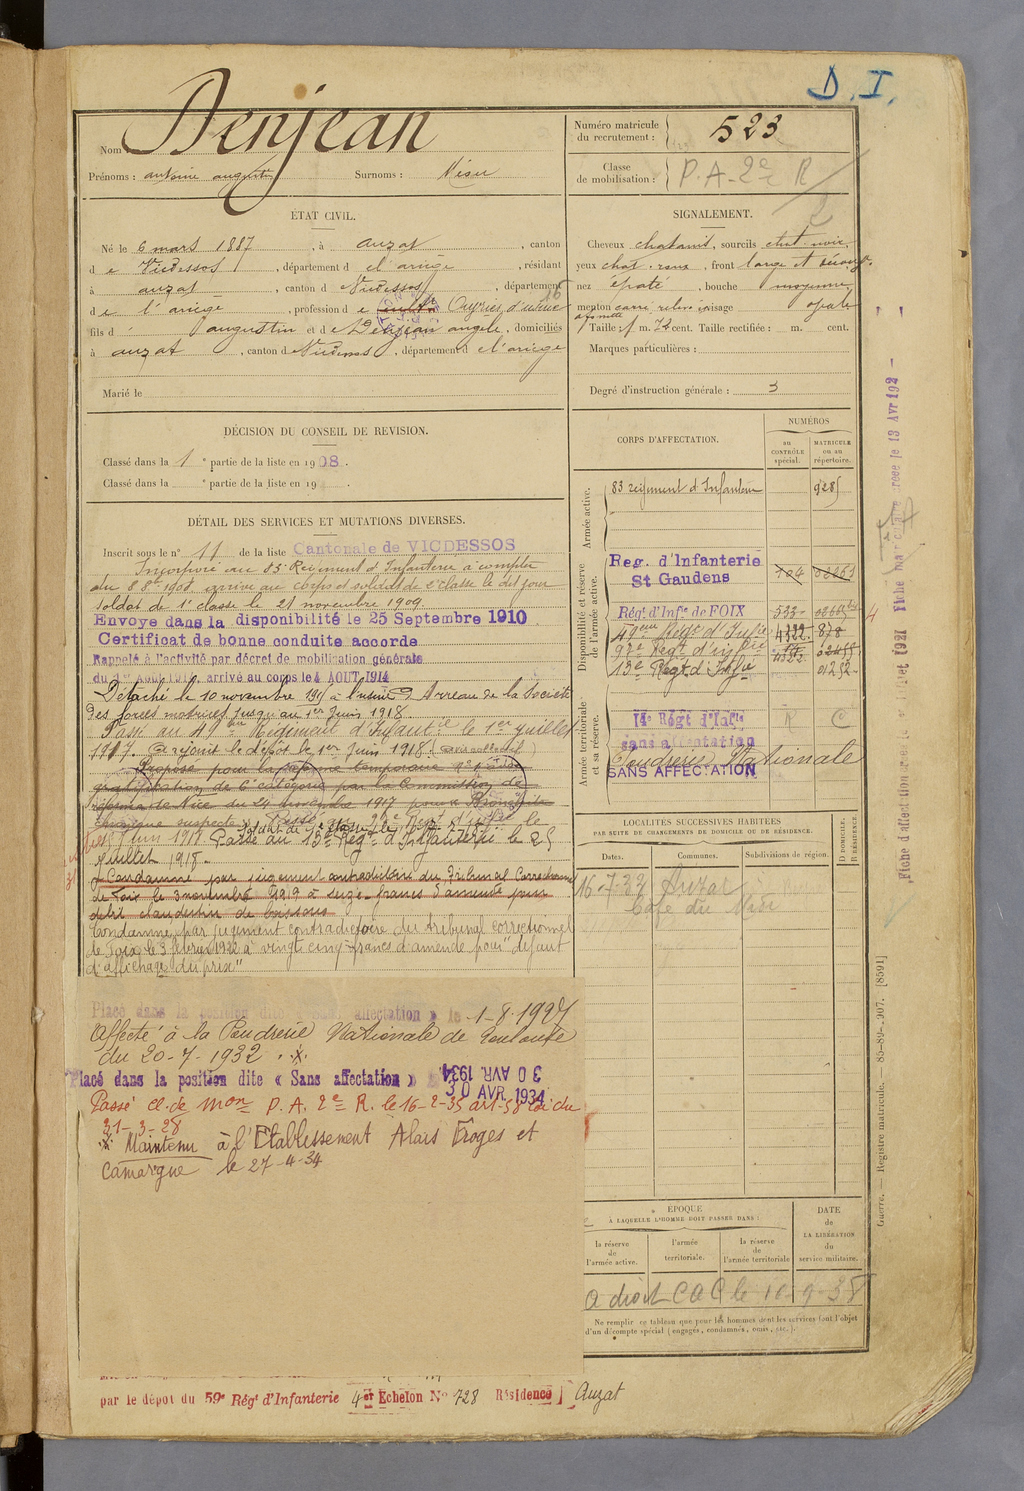 D. I.
Nom : Denjean
Prénoms : antoine auguste Surnoms :
ÉTAT CIVIL.
Né le 6 mars 1887, à auzat, canton
de Vicdessos, département de l'ariège, résidant
à auzat, canton de Vicdessos, département
de l'ariège, profession de cultr Ouvrier d'usine
fils d'augustin et de Denjean angèle, domiciliés
à auzat, canton de Vicdessos, département de l'ariège
Marié le
DÉCISION DU CONSEIL DE REVISION.
Classé dans la 1e partie de la liste en 1908.
Classé dans la e partie de la liste en 19
DÉTAIL DES SERVICES ET MUTATIONS DIVERSES.
Inscrit sous le n° 11 de la liste Cantonale de VICDESSOS
Incorporé au 83e Régiment d'Infanterie à compter
du 8 8bre 1908 arrivé au corps et soldat de 2e classe le dit jour
Soldat de 1e classe le 21 novembre 1909
Envoyé dans la disponibilité le 25 Septembre 1910
Certificat de bonne conduite accordé
Rappelé à l'activité par décret de mobilisation générale
du 1er AOUT 1914, arrivé au corps le 4 AOUT 1914
Détaché le 10 novembre 1915 à l'usine d'Arreau de la Société
des forces motrices jusqu'au 1er Juin 1918
Passé au 49me Régiment d'Infant. il le 1er juillet
1917. A rejoint le dépôt le 1er Juin 1918 (avis collectif)
Proposé pour la réforme temporaire
gratification de 6e catégorie par la Commission de
réforme de Nice du 24 novembre 1917 pour
suspecte. Passé au 92e Régt d'Infie le
Juin 1918 Passé au 15e Régt d'Infanterie le 25
Juillet 1918.
Condamné par jugement contradictoire du Tribunal Correctionnel
de Foix le 3 novembre 1919 à seize francs d'amende pour
délit clandestin de boissons
Condamné par jugement contradictoire du tribunal correctionnel
de Foix le 3 février 1922 à vingt cinq francs d'amende pour "défaut
d'affichage du prix"
Placé dans la position dite « Sans affectation » le 1-8-1927
Affecté à la Poudrerie Nationale de Toulouse
du 20-7-1932
Placé dans la position dite « Sans affectation » 30 AVR. 1934
30 AVR. 1934
Passé cl. de mon P. A. 2e R. le 16-2-35 art. 58 loi du
31-3-28
Maintenu à l'Etablissement Alais Froges et
Camargue le 27-4-34
par le dépôt du 59e Régt d'Infanterie 4er Echelon N° 728 Résidence Auzat
Numéro matricule
du recrutement : 523
Classe
de mobilisation : P. A - 2e R
SIGNALEMENT.
Cheveux chatains, sourcils chat-noir
yeux chat. roux, front large et découvt
nez épaté, bouche moyenne
menton carré relevé visage ovale
Taille : 1 m. 72 cent. Taille rectifiée : m. cent.
Marques particulières :
Degré d'instruction générale : 3
CORPS D'AFFECTATION.
NUMÉROS
au
CONTRÔLE
spécial.
MATRICULE
ou au
répertoire.
Armée active.
83 régiment d'Infanterie 9285
Disponibilité et réserve
de l'armée active.
Reg. d'Infanterie
St Gaudens
Régt d'Infie de FOIX 533
49eme Régt d'Infie 4322 878
92e Régt d'infie
15e Régt d'Infie 01252
Armée territoriale
et sa réserve.
14e Régt d'Infie R C
sans affectation
Poudrerie Nationale
SANS AFFECTATION
LOCALITÉS SUCCESSIVES HABITÉES
PAR SUITE DE CHANGEMENTS DE DOMICILE OU DE RÉSIDENCE.
Dates. Communes. Subdivisions de région. D DOMICILE. R RÉSIDENCE.
16-7-32 Auzat
Café du Midi
ÉPOQUE
À LAQUELLE L'HOMME DOIT PASSER DANS :
DATE
de
LA LIBÉRATION
du
service militaire.
la réserve
de
l'armée active.
l'armée
territoriale.
la réserve
de
l'armée territoriale
a droit C à C le 16-9-35
Ne remplir ce tableau que pour les hommes dont les services font l'objet
d'un décompte spécial (engagés, condamnés, omis, etc.).
Guerre. — Registre matricule. — 85-89-1907. [8591]